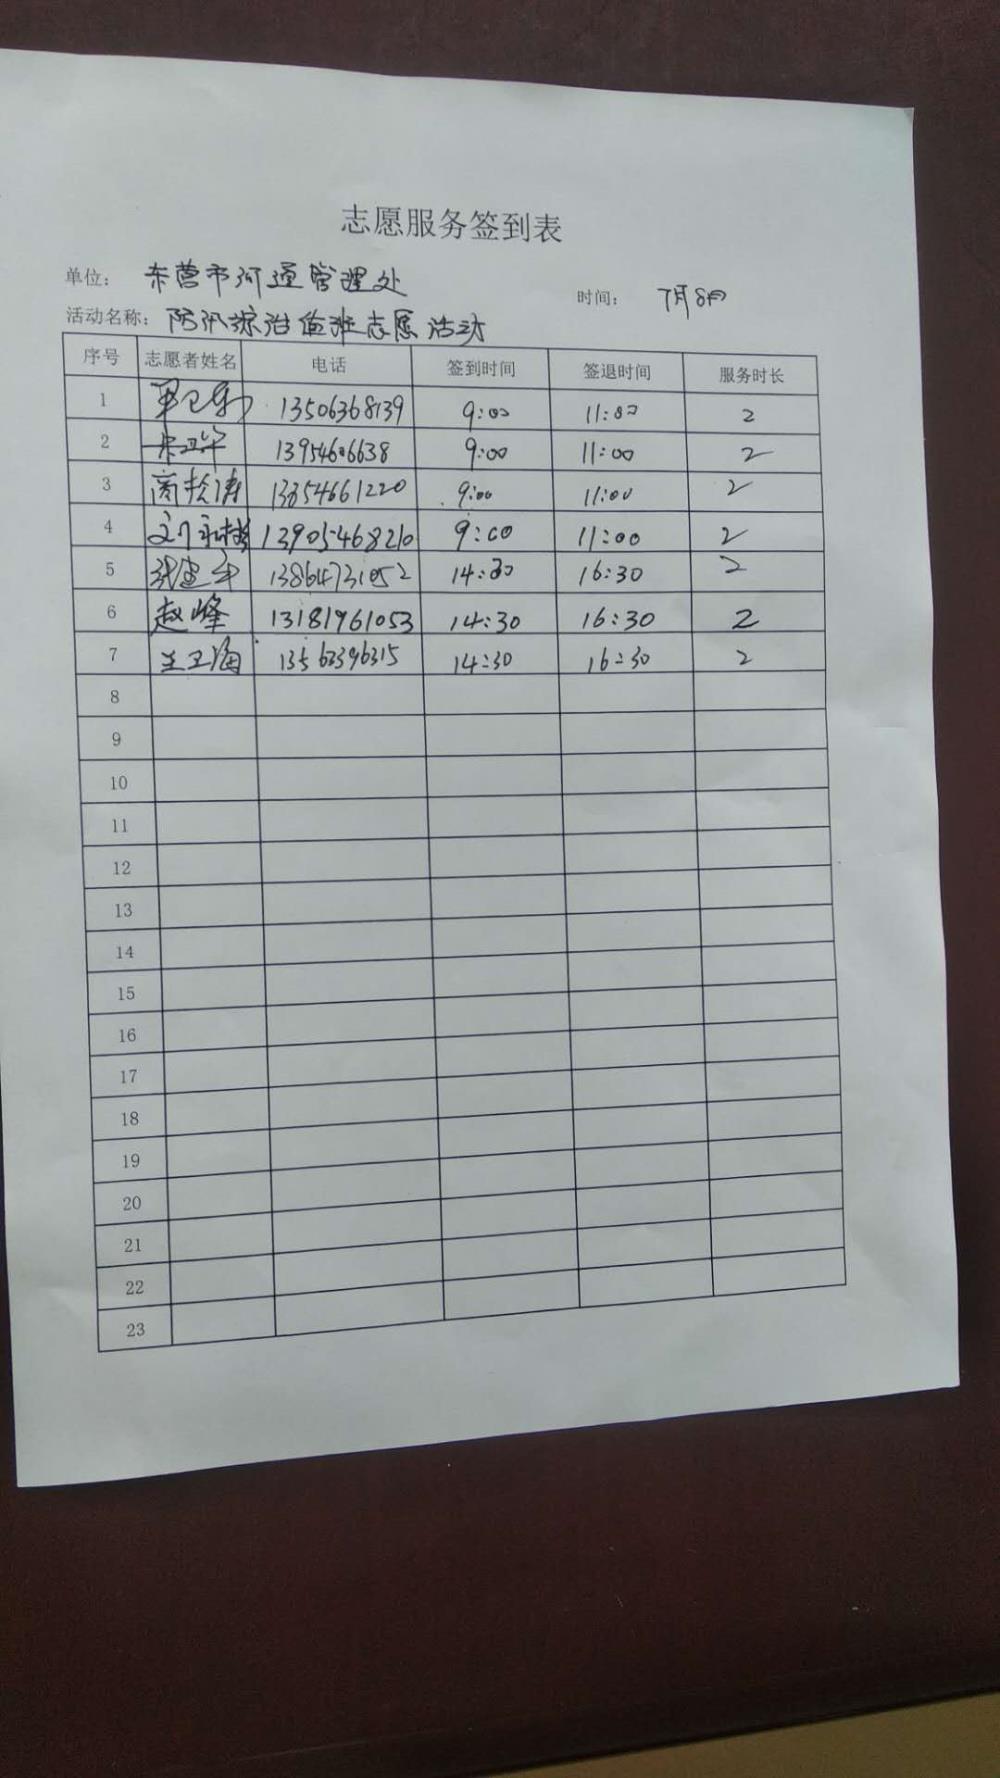 志愿服务签到表
单位： 东营市河道管理处 时间： 7月8日
活动名称： 防汛综治值班志愿活动
序号 志愿者姓名 电话 签到时间 签退时间 服务时长
1 13506368139 9:00 11:00 2
2 13954606638 9:00 11:00 2
3 13854661220 9:00 11:00 2
4 13905468210 9:00 11:00 2
5 13864731052 14:30 16:30 2
6 赵峰 13181961053 14:30 16:30 2
7 王卫海 13562396315 14:30 16:30 2
8
9
10
11
12
13
14
15
16
17
18
19
20
21
22
23